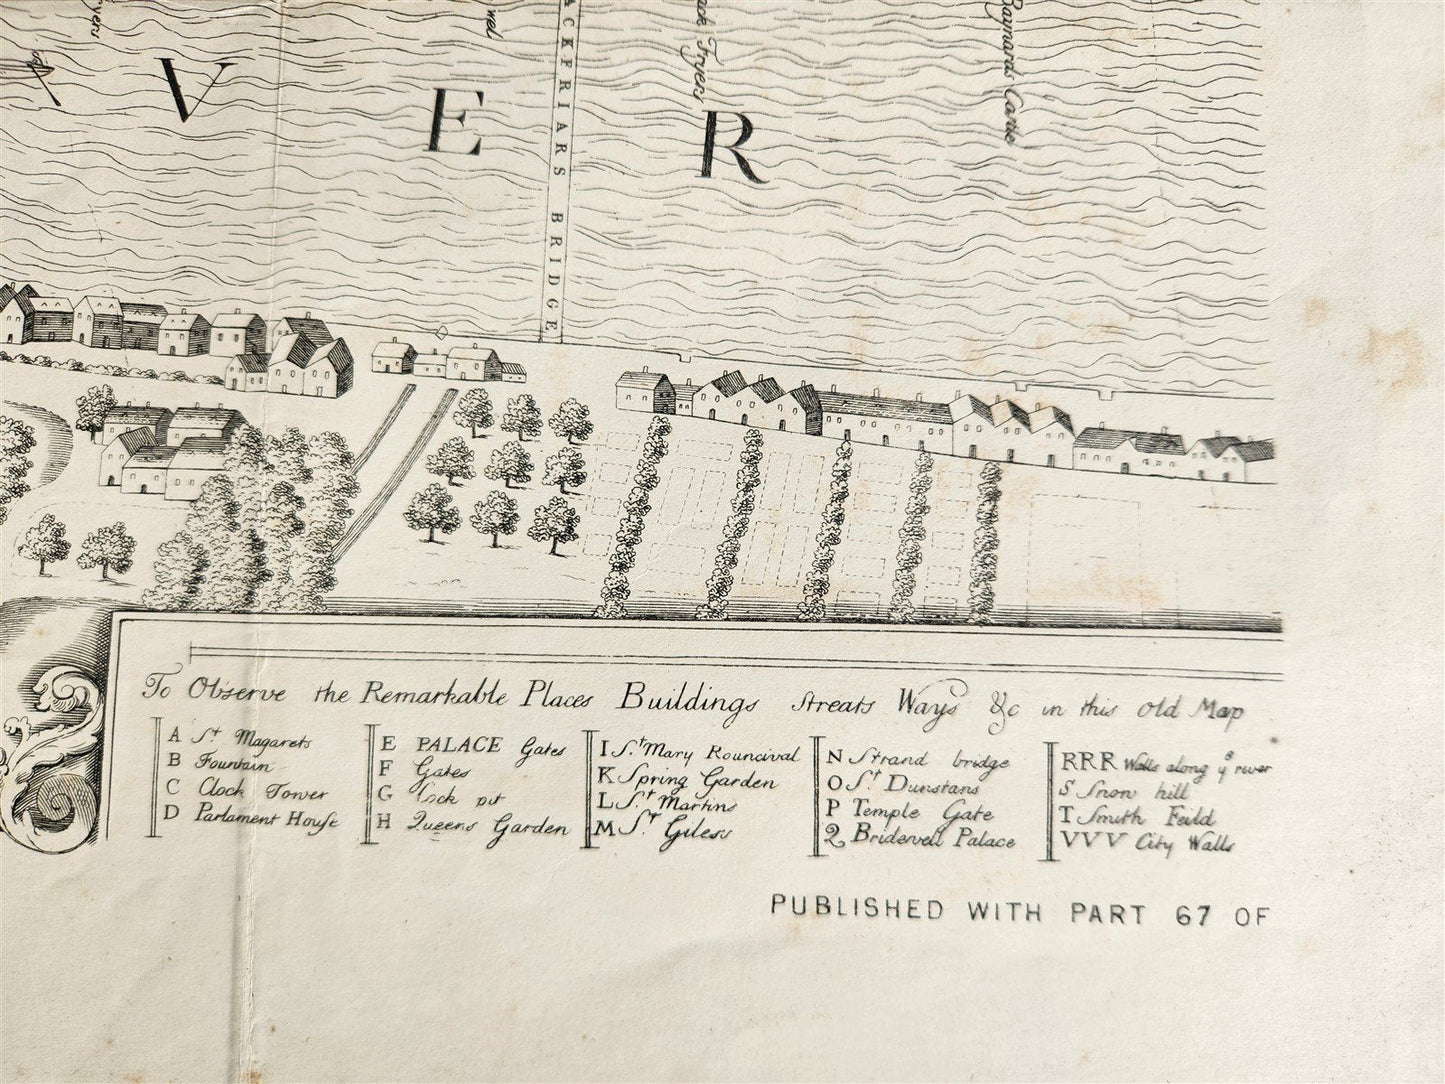 V E R
BLACKFRIARS BRIDGE
Fryers
Baynards Castle
To Observe the Remarkable Places Buildings Streats Ways &c in this old Map
A St Magarets
B Fountain
C Clock Tower
D Parlament House
E PALACE Gates
F Gates
G Cock pit
H Queens Garden
I St Mary Rouncival
K Spring Garden
L St Martins
M St Giless
N Strand bridge
O St Dunstans
P Temple Gate
Q Bridewell Palace
RRR Walls along ye river
S Snow hill
T Smith Feild
VVV City Walls
PUBLISHED WITH PART 67 OF